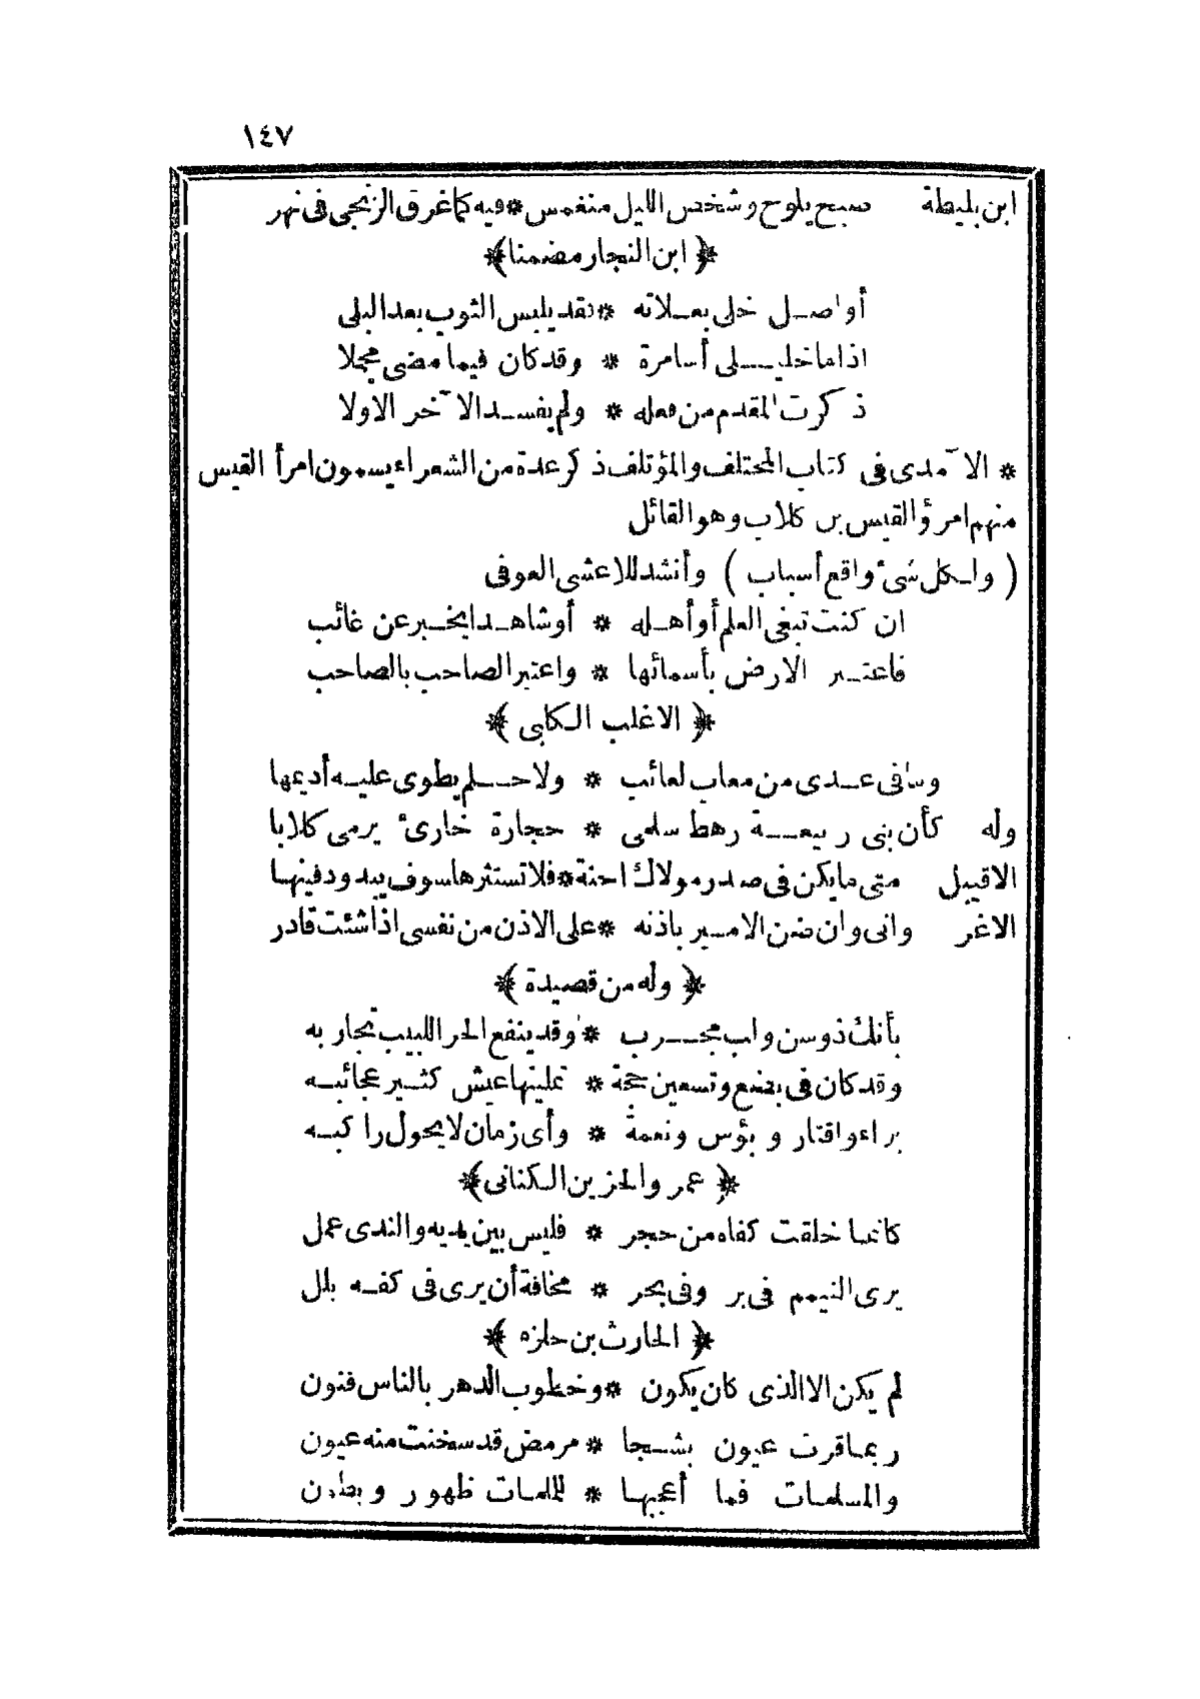 ١٤٧
ابن بليطة صبح يلوح وشخص الليل منغمس * فيه كما غرق الزنجى فى نهر
﴿ ابن النجار مضمنا ﴾
أواصل خلى بعلاته * فقد يلبس الثوب بعد البلى
اذا ما خليلى أسامرة * وقد كان فيما مضى مجملا
ذكرت المقدم من فعله * ولم يفسد الآخر الاولا
* الآمدى فى كتاب المختلف والمؤتلف ذكر عدة من الشعراء يسمون امرأ القيس
منهم امرؤ القيس بن كلاب وهو القائل
( ولكل شىء واقع أسباب ) وأنشد للاعشى العوفى
ان كنت تبغى العلم أو أهله * أو شاهدا يخبر عن غائب
فاعتبر الارض بأسمائها * واعتبر الصاحب بالصاحب
﴿ الاغلب الكابى ﴾
وما فى عدى من معاب لعائب * ولا حلم يطوى عليه أديمها
وله كأن بنى ربيعة رهط سلمى * حجارة خارئ يرمى كلابا
الاقيبل متى ما يكن فى صدر مولاك احنة * فلا تستثرها سوف يبدو دفينها
الاغر وانى وان ضن الامير باذنه * على الاذن من نفسى اذا شئت قادر
﴿ وله من قصيدة ﴾
بأنك ذو سن واب مجرب * وقد ينفع الحر اللبيب تجاربه
وقد كان فى بضع وتسعين حجة * تمليتها عيش كثير عجائبه
براء واقتار وبؤس ونعمة * وأى زمان لا يحول راكبه
﴿ عمر والحزين الكنانى ﴾
كانما خلقت كفاه من حجر * فليس بين يديه والندى عمل
يرى التيمم فى بر وفى بحر * مخافة أن يرى فى كفه بلل
﴿ الحارث بن حلزه ﴾
لم يكن الا الذى كان يكون * وخطوب الدهر بالناس فنون
ربما قرت عيون بشجا * مرمض قد سخنت منه عيون
والمسلمات فما أعجبها * للملمات ظهور وبطون